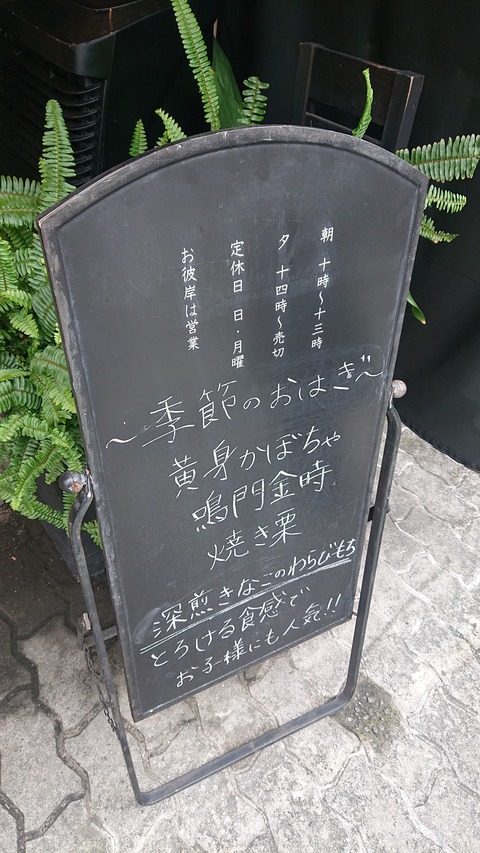 朝 十時~十三時
夕 十四時~売切
定休日 日・月曜
お彼岸は営業
~季節のおはぎ~
黄身かぼちゃ
鳴門金時
焼き栗
深煎きなこのわらびもち
とろける食感で
お子様にも人気!!